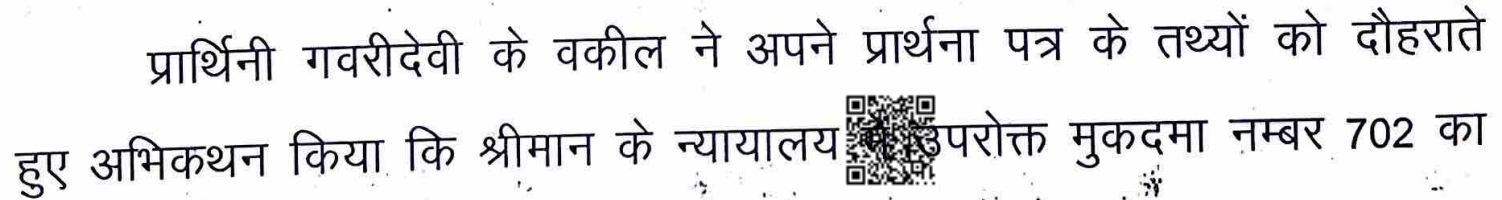 प्रार्थिनी गवरीदेवी के वकील ने अपने प्रार्थना पत्र के तथ्यों को दौहराते
हुए अभिकथन किया कि श्रीमान के न्यायालय में उपरोक्त मुकदमा नम्बर 702 का